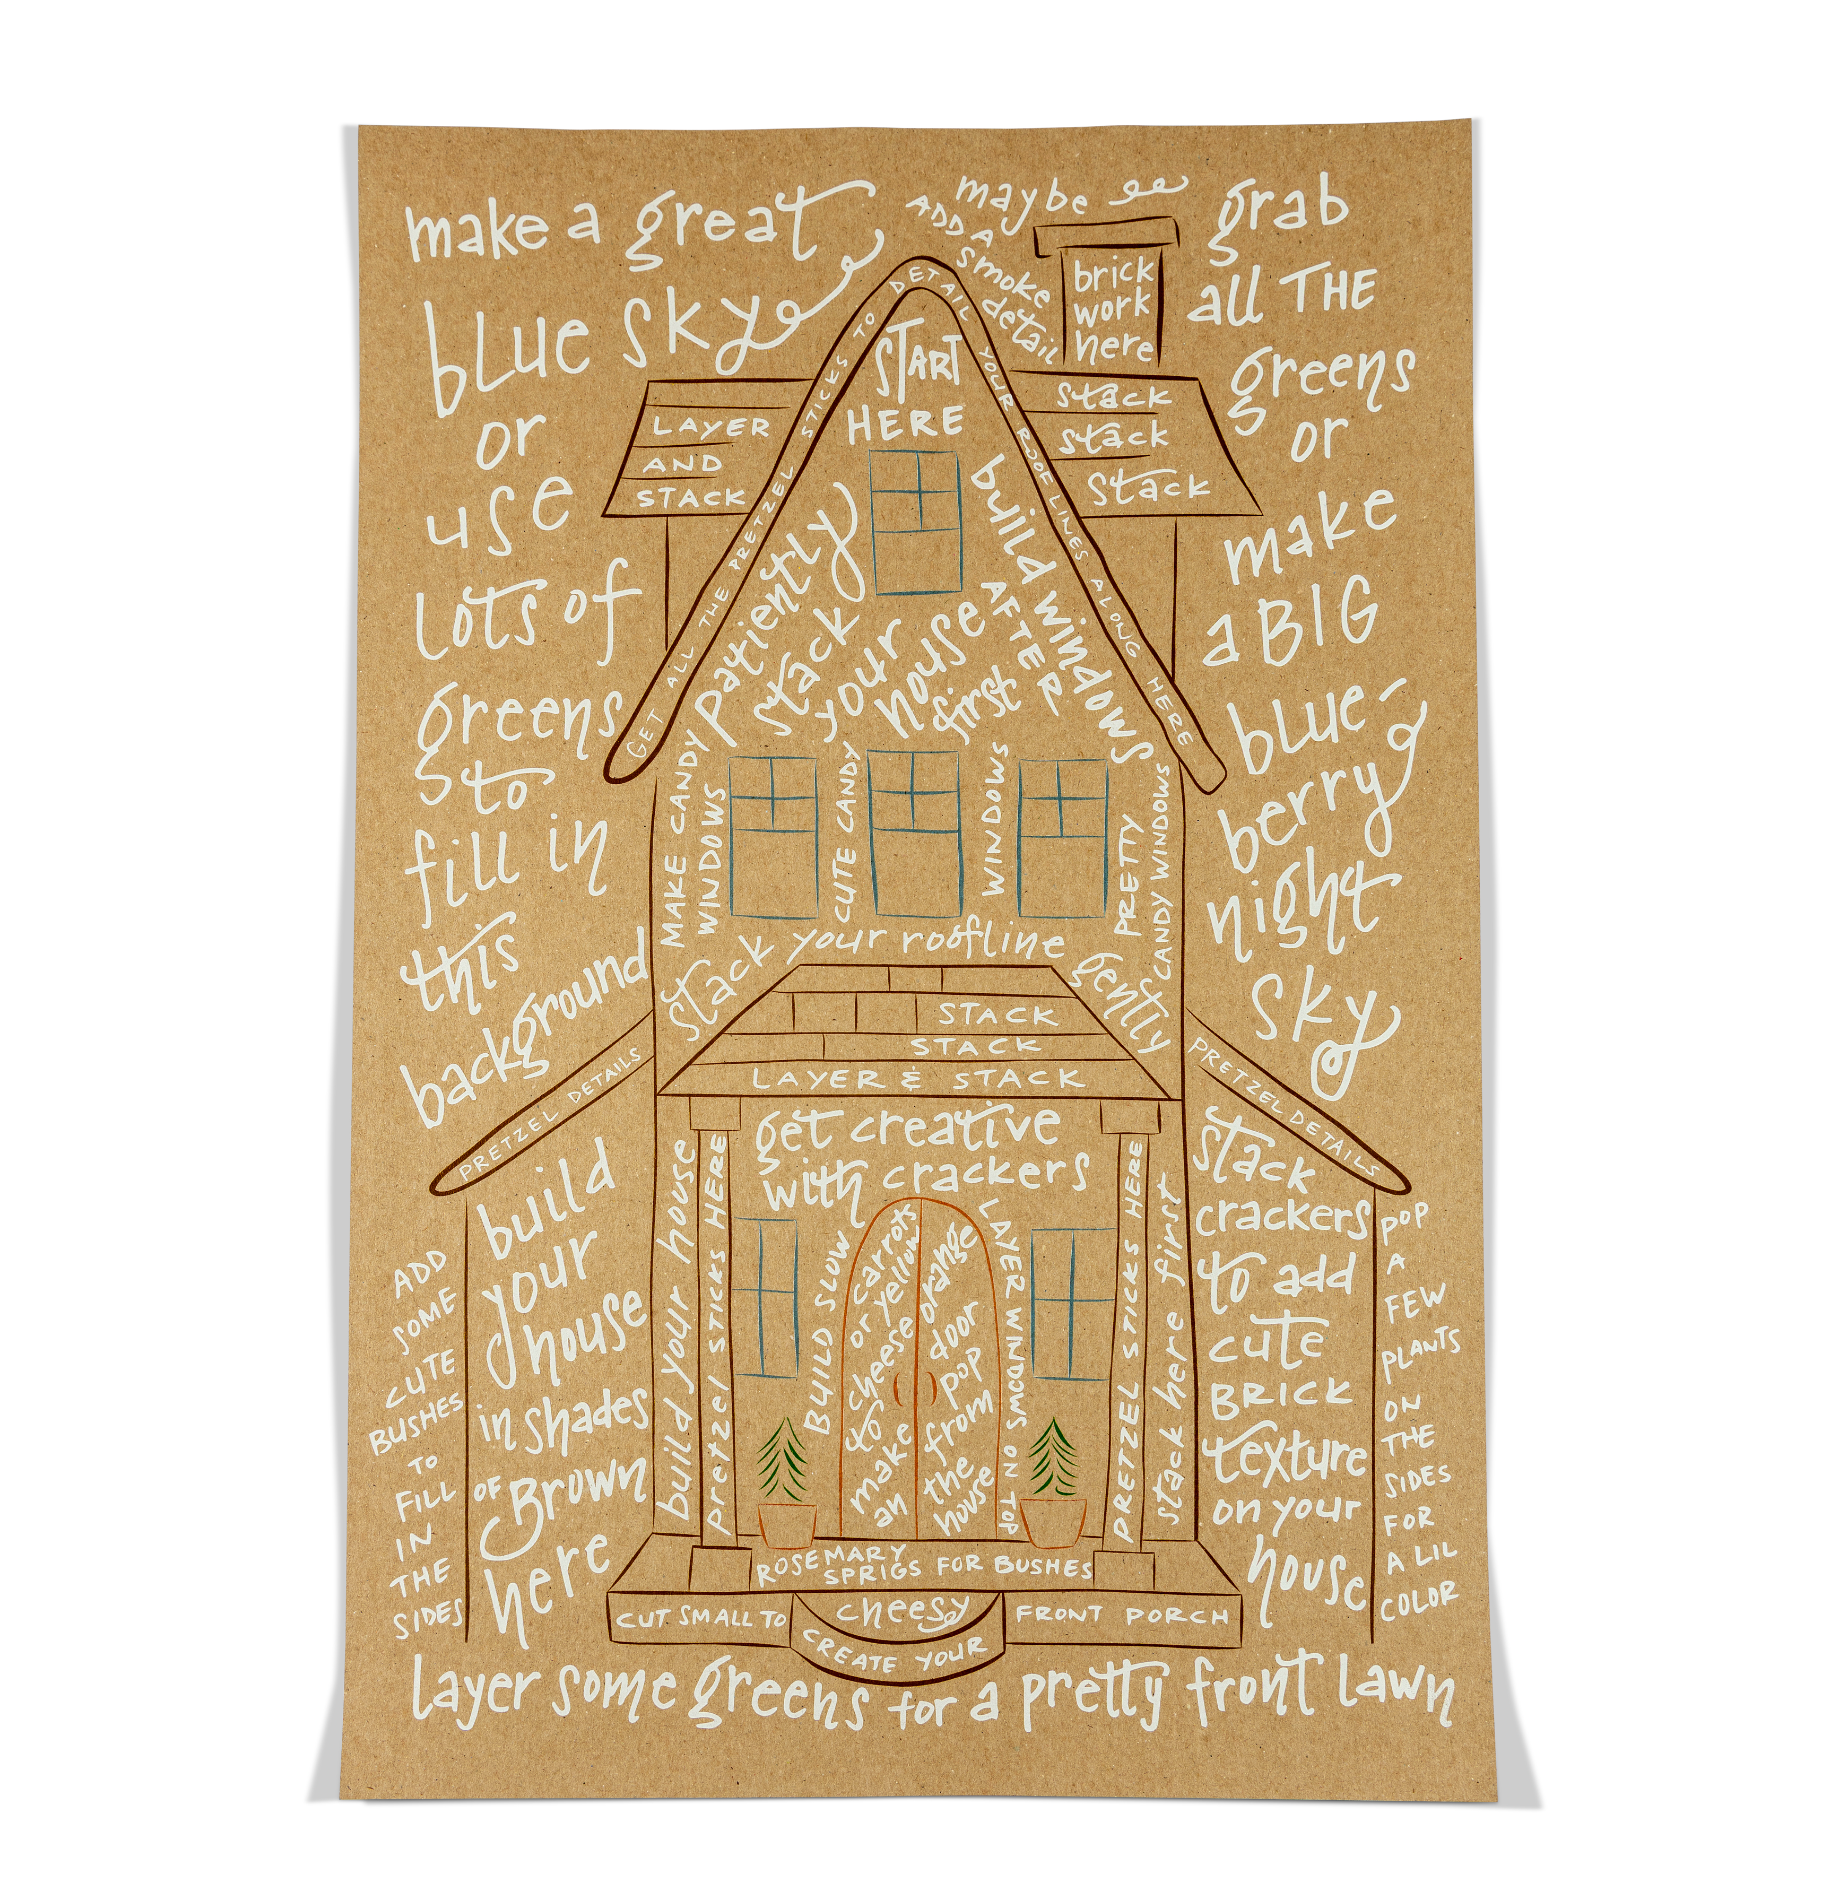 make a great
blue sky
or
use
lots of
greens
to
fill in
this
background
maybe
ADD A
smoke
detail
brick
work
here
grab
all THE
greens
or
make
a BIG
blue-
berry
night
sky
GET ALL THE PRETZEL STICKS TO DETAIL YOUR ROOF LINES ALONG HERE
START
HERE
LAYER
AND
STACK
stack
stack
stack
patiently
stack
your
house
first
build windows
AFTER
MAKE CANDY
WINDOWS
CUTE CANDY
WINDOWS
PRETTY
CANDY WINDOWS
stack your roofline gently
STACK
STACK
LAYER & STACK
PRETZEL DETAILS
PRETZEL DETAILS
get creative
with crackers
build your house
pretzel STICKS HERE
BUILD SLOW
carrots
or yellow
to cheese orange
make door
an pop
from
the
house
LAYER WINDOWS ON TOP
PRETZEL STICKS HERE
stack here first
ADD
SOME
CUTE
BUSHES
TO
FILL
IN
THE
SIDES
build
your
house
in shades
OF Brown
here
stack
crackers
to add
cute
BRICK
texture
on your
house
POP
A
FEW
PLANTS
ON
THE
SIDES
FOR
A LIL
COLOR
ROSEMARY
SPRIGS FOR BUSHES
CUT SMALL TO
cheesy
CREATE YOUR
FRONT PORCH
Layer some greens for a pretty front lawn